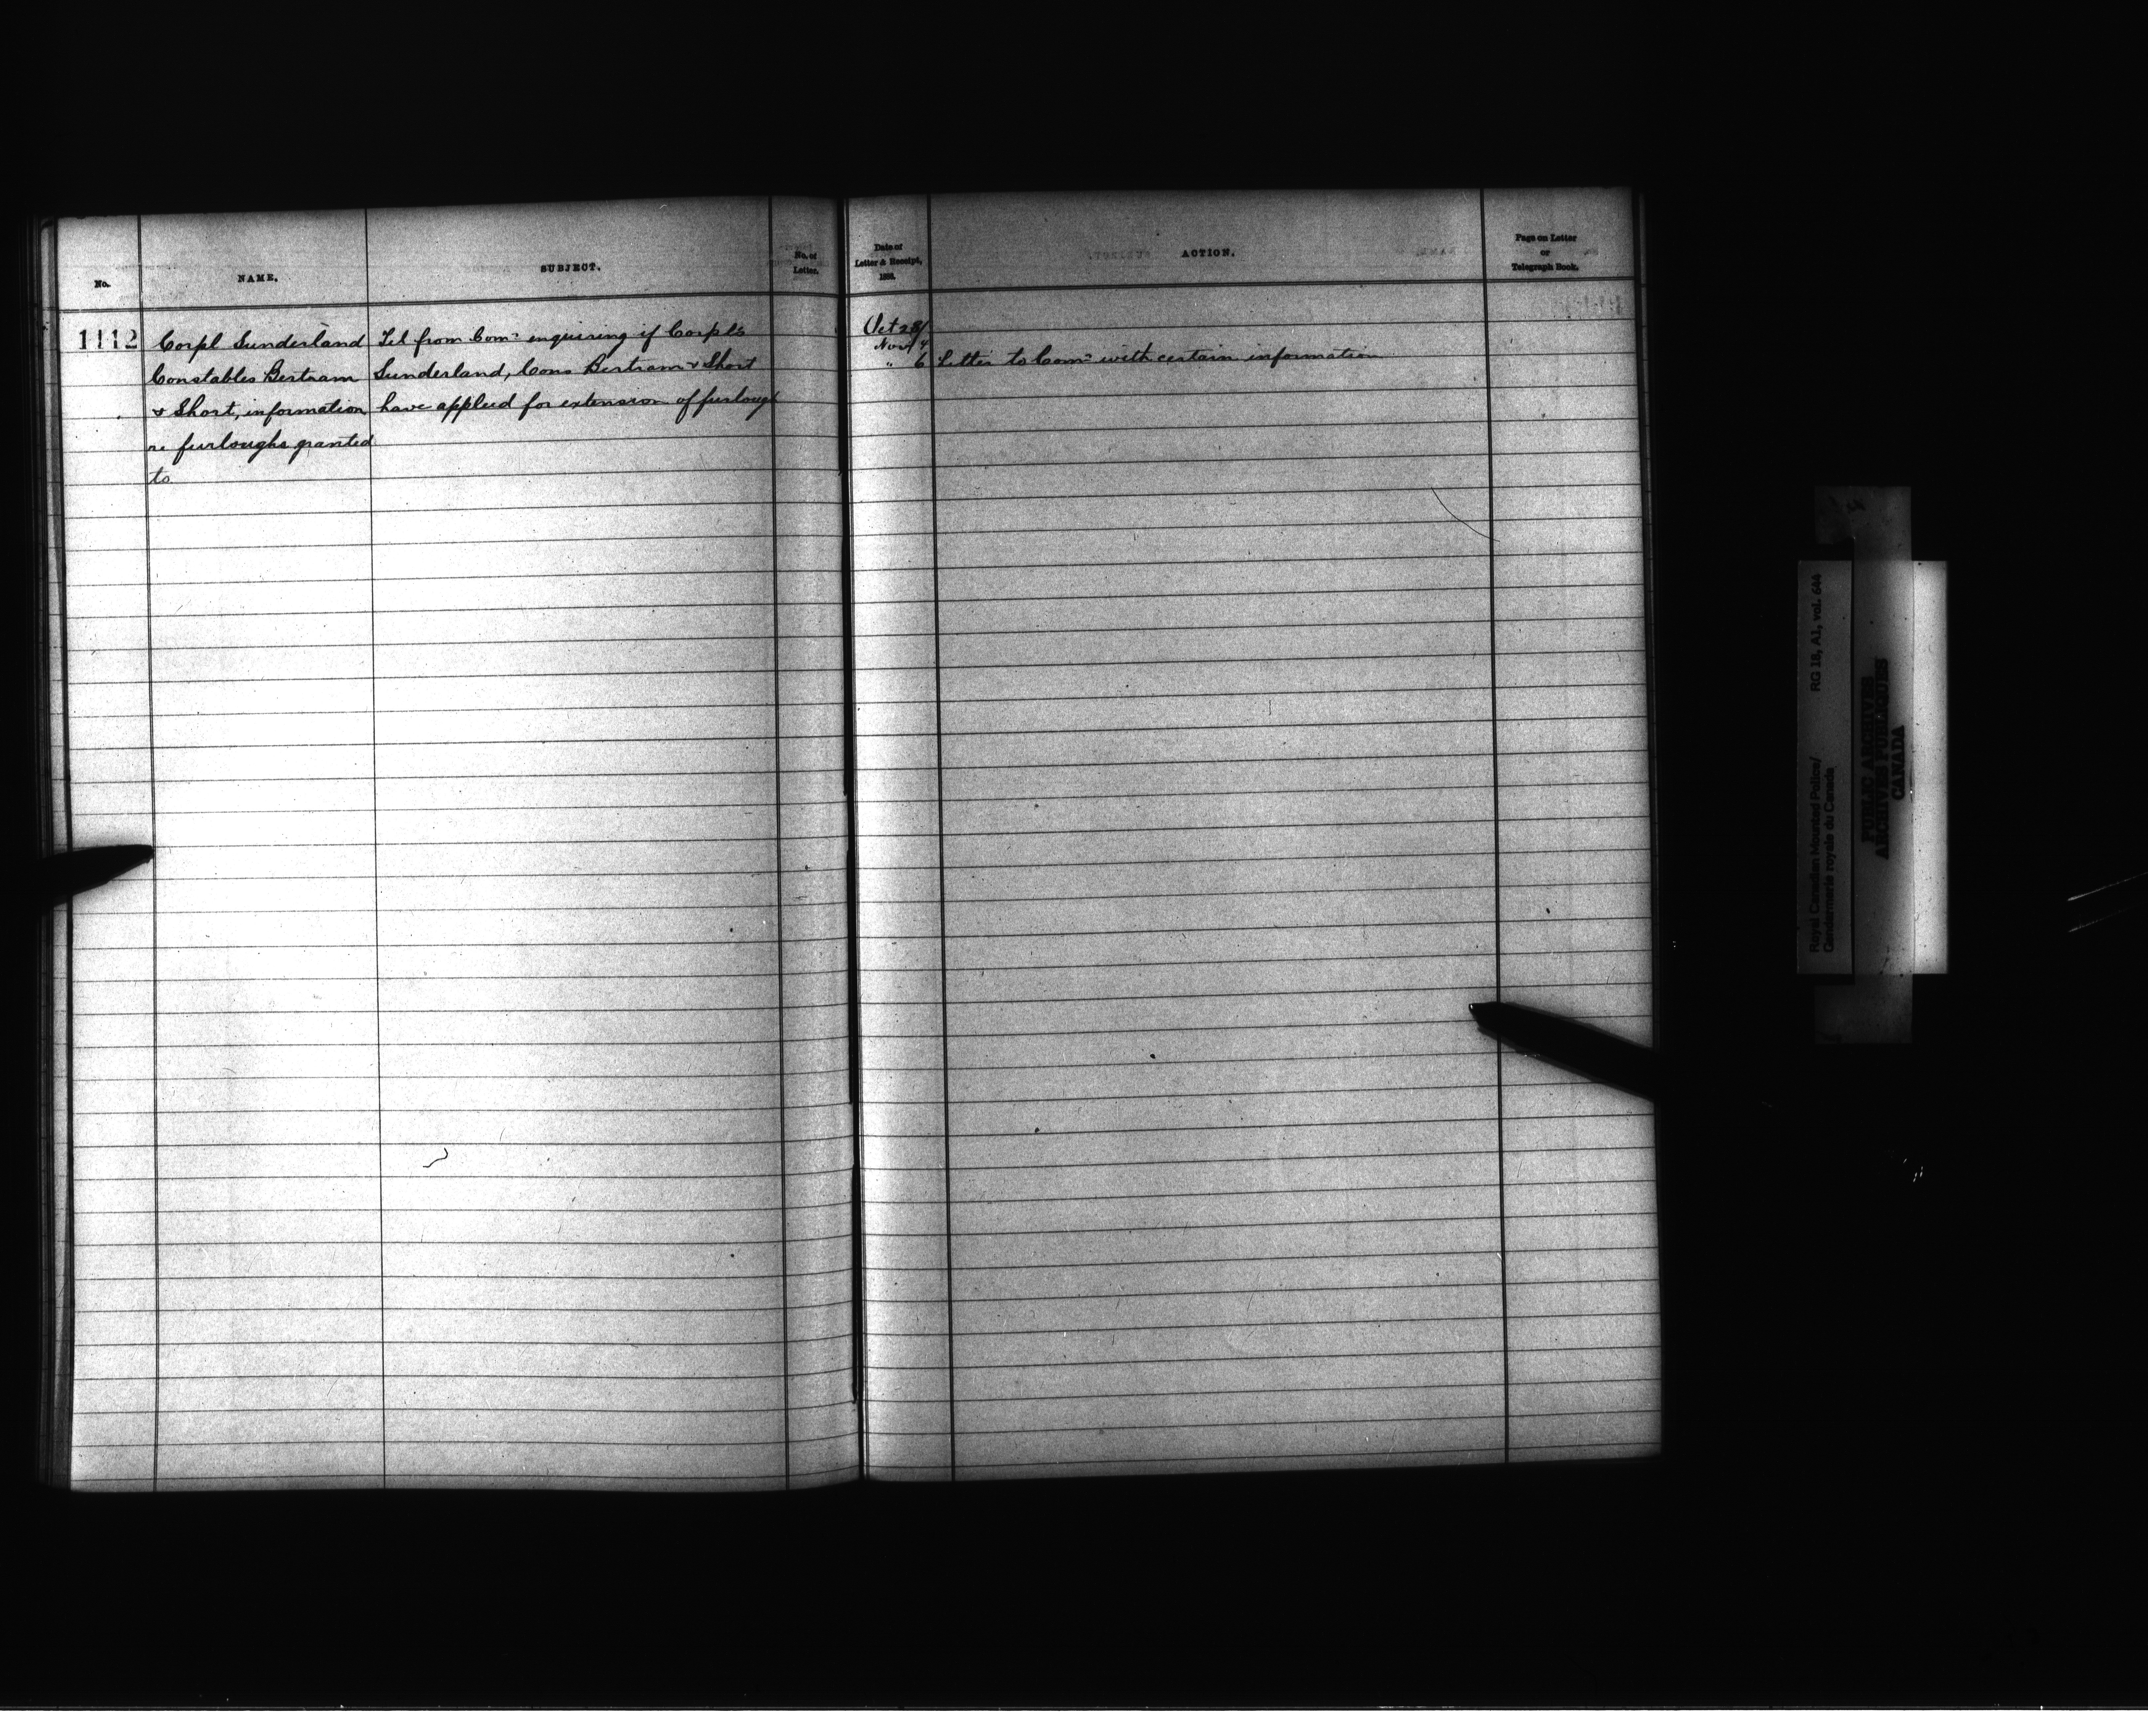 No.
NAME.
SUBJECT.
No. of
Letter.
Date of
Letter & Receipt,
ACTION.
Page on Letter
or
Telegraph Book.
1112
Corpl Sunderland
Constables Bertram
& Short, information
re furloughs granted
to
Tel from Comr enquiring if Corpls
Sunderland, Cons Bertram & Short
have applied for extension of furlough
Oct 28/
Nov 4
" 6 Letter to Comr with certain information
Royal Canadian Mounted Police/ RG 18, A1, vol. 644
Gendarmerie royale du Canada
PUBLIC ARCHIVES
ARCHIVES PUBLIQUES
CANADA